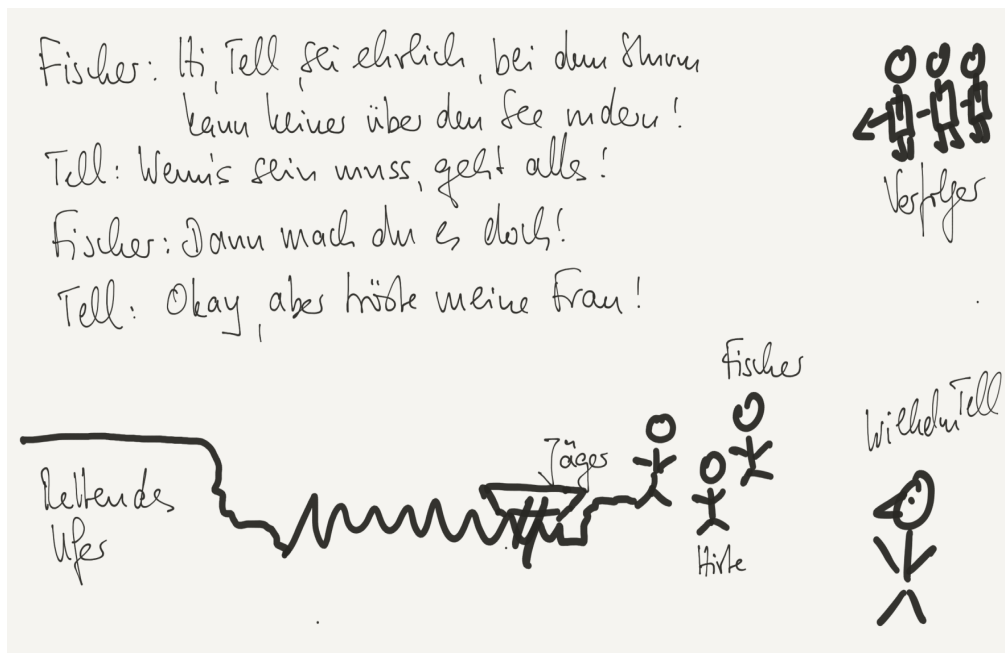 Fischer: Hi, Tell, sei ehrlich, bei dem Sturm
kann keiner über den See rudern!
Tell: Wenn's sein muss, geht alles!
Fischer: Dann mach du es doch!
Tell: Okay, aber tröste meine Frau!
Verfolger
Fischer
Wilhelm Tell
Jäger
Rettendes
Ufer
Hirte